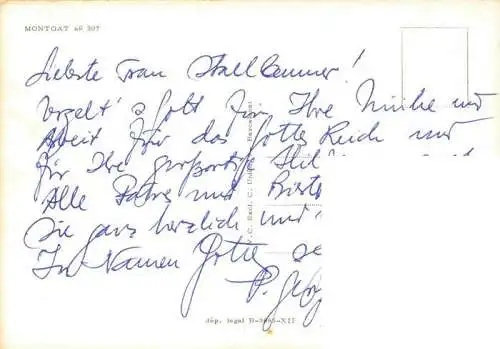 MONTGAT 68 307
Liebste Frau Stallbaumer!
Vergelt's Gott für Ihre Mühe und
Arbeit für das Gottes Reich und
für Ihre großartige
Alle Patres und
Sie ganz herzlich und
Im Namen Gottes
P.
dép. legal B-3095-XII